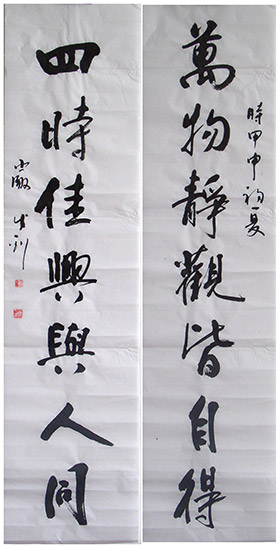 萬物靜觀皆自得
時甲申初夏
四時佳興與人同